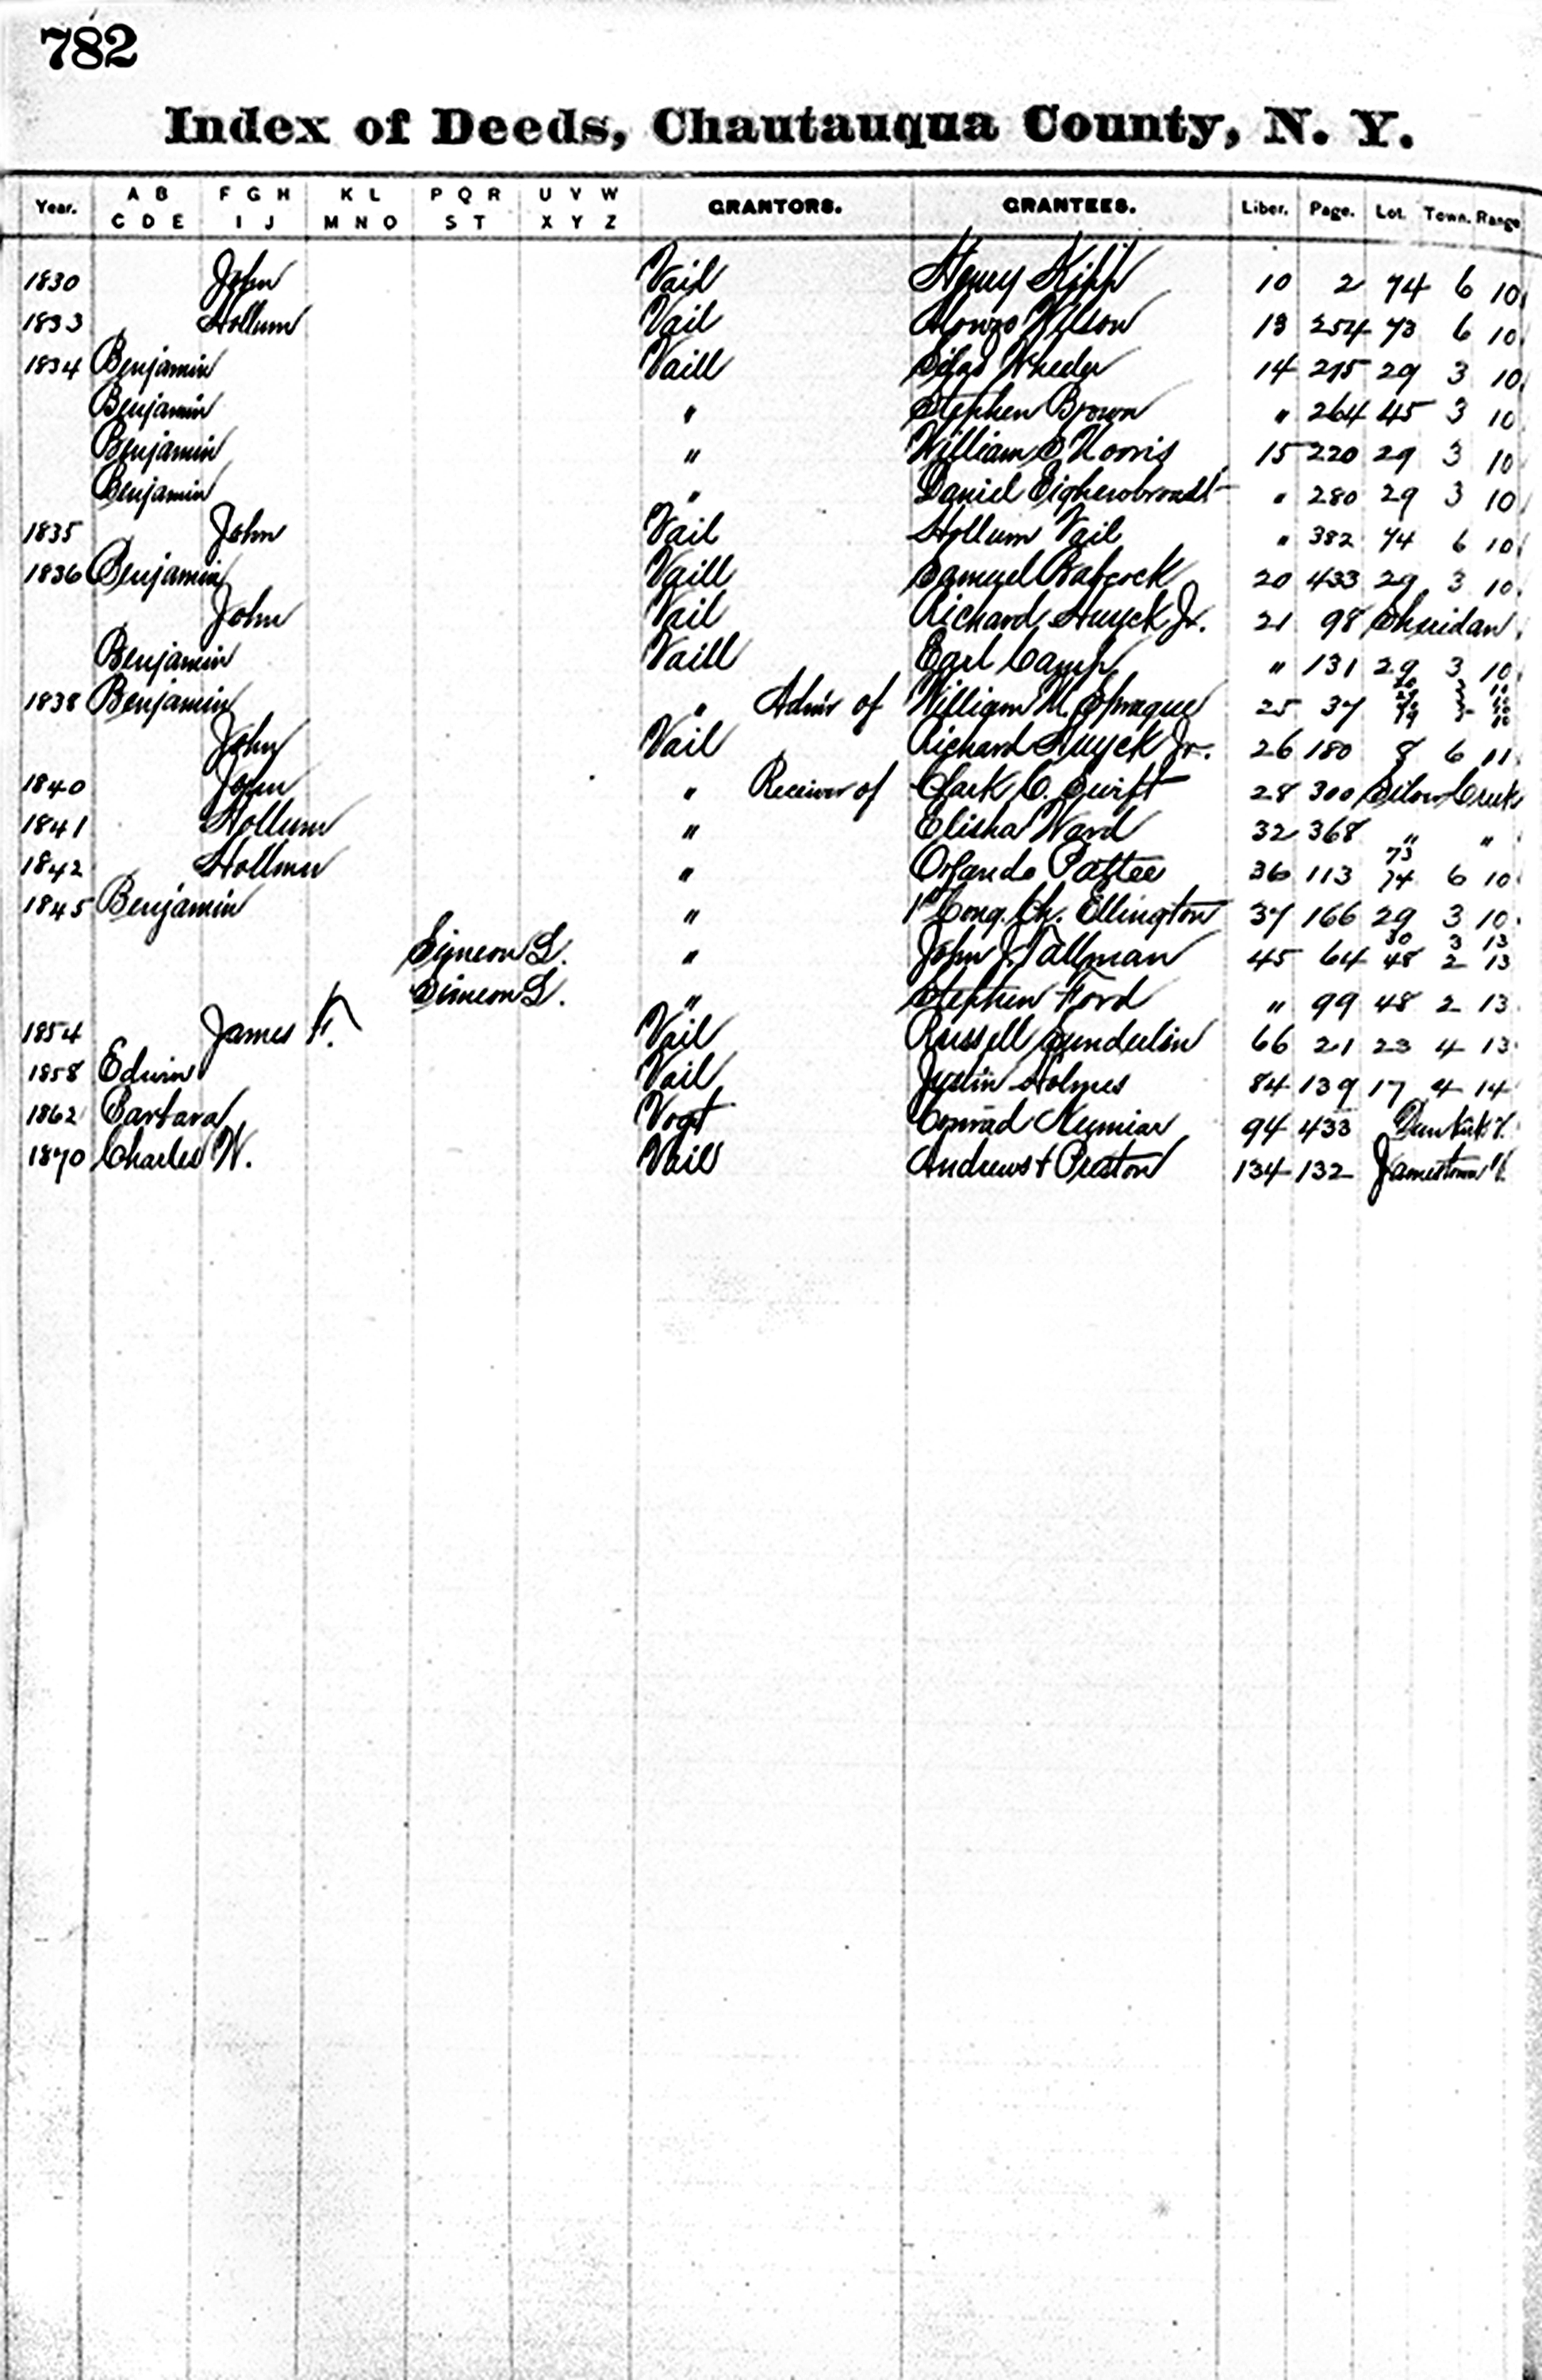 782
Index of Deeds, Chautauqua County, N. Y.
Year. A B C D E F G H I J K L M N O P Q R S T U V W X Y Z GRANTORS. GRANTEES. Liber. Page. Lot. Town. Range
1830 John Vail Henry Kipp 10 2 74 6 10
1833 Hollum Vail Alonzo Wilson 13 254 73 6 10
1834 Benjamin Vaill Silas Wheeler 14 215 29 3 10
Benjamin " Stephen Brown " 264 45 3 10
Benjamin " William S Norris 15 220 29 3 10
Benjamin " Daniel " 280 29 3 10
1835 John Vail Hollum Vail " 382 74 6 10
1836 Benjamin Vaill Samuel Babcock 20 433 29 3 10
John Vail Richard Huyck Jr. 21 98 Sheridan
Benjamin Vaill Earl Camp " 131 29 3 10
1838 Benjamin " Admr of William M. Sprague 25 37
John Vail Richard Huyck Jr. 26 180 8 6 11
1840 John " Receiver of Clark C. Swift 28 300 Silver Creek
1841 Hollum " Elisha Ward 32 368 " "
1842 Hollmu " Orlando Pattee 36 113 73 74 6 10
1845 Benjamin " 1st Cong. Ch. Ellington 37 166 29 3 10
Simeon L. " John J. Tallman 45 64 30 3 13 48 2 13
Simeon L. " Stephen Ford " 99 48 2 13
1854 James H. Vail Russell Sunderlin 66 21 23 4 13
1858 Edwin Vail Justin Holmes 84 139 17 4 14
1862 Barbara Vogt Conrad 94 433 Dunkirk V.
1870 Charles W. Vail Andrews & Preston 134 132 Jamestown V.